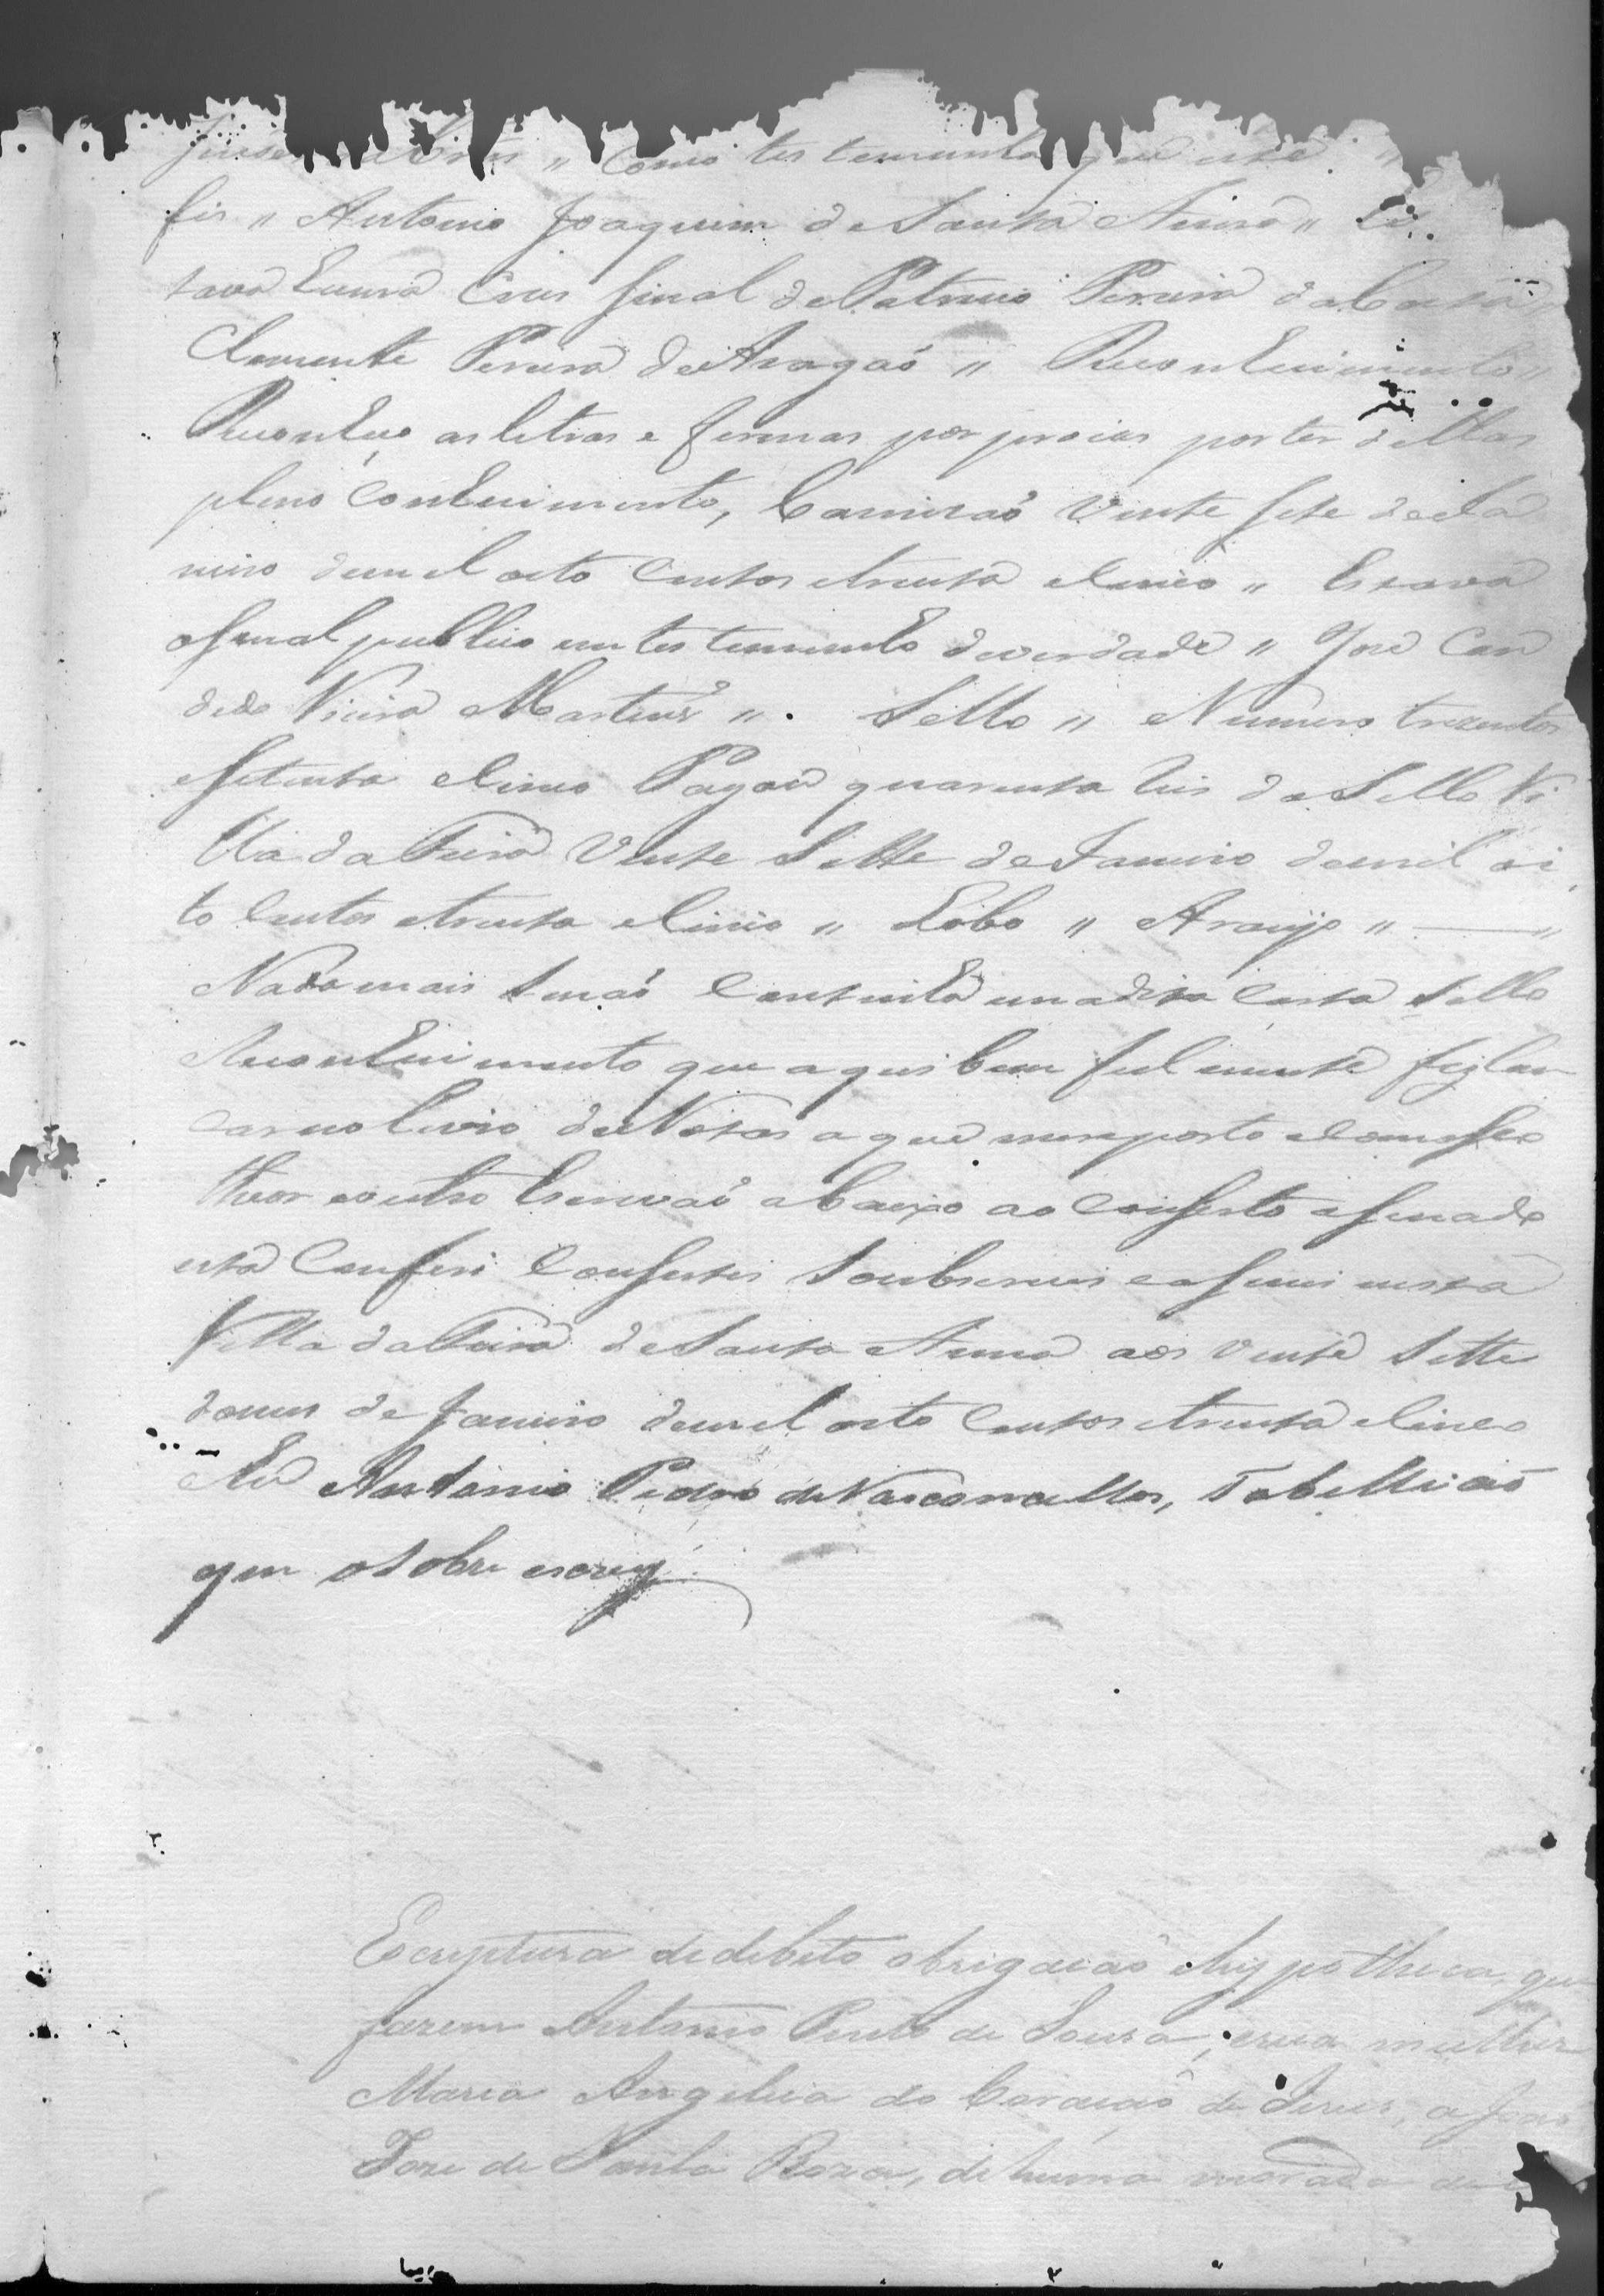 como testemunha que este
fis " Antonio Joaquim de Santa Anna " Es
tava huma Crus signal de Patricio Pereira da Costa "
Clemente Pereira de Aragaõ " Reconhecimento "
Reconheço as letras e firmas por proias por ter dellas
pleno Conhecimento, Camizaõ vinte sete de Ja
neiro de mil oito Centos etrenta eCinco " Estava
o signal publico em testemunho de verdade " José Can
dido Vieira Martins ". Sello " Numero trezentos
esetenta eCinco Pagou quarenta reis de Sello Vi
lla da Feira Vinte Sette de Janeiro de mil oi
to Centos etrenta eCinco " Lobo " Araujo " —— "
Nada mais Senaõ Continha em a dita Carta Sello
Reconhecimento que aqui bem fielmente fiz lan
çar no Livro de Notas a que me reporto e com o seo
theor e outro Escrivaõ abaixo ao Conserto asignado
esta Conferi Consertei Soubscrevi e asinei nesta
Villa da Feira de Santa Anna aos vinte Sette
do mes de Janeiro de mil oito Centos etrenta eCinco
Eu Antonio Pedro de Vasconcellos, Tabelliaõ
que o Sobre escrevy
Escriptura de debito obrigaçaõ ehyppotheca, que
fazem Antonio Pinto de Souza, e sua mulher
Maria Angelica do Coraçaõ de Jesus, a Joaõ
Joze de Santa Roza, de huma morada de